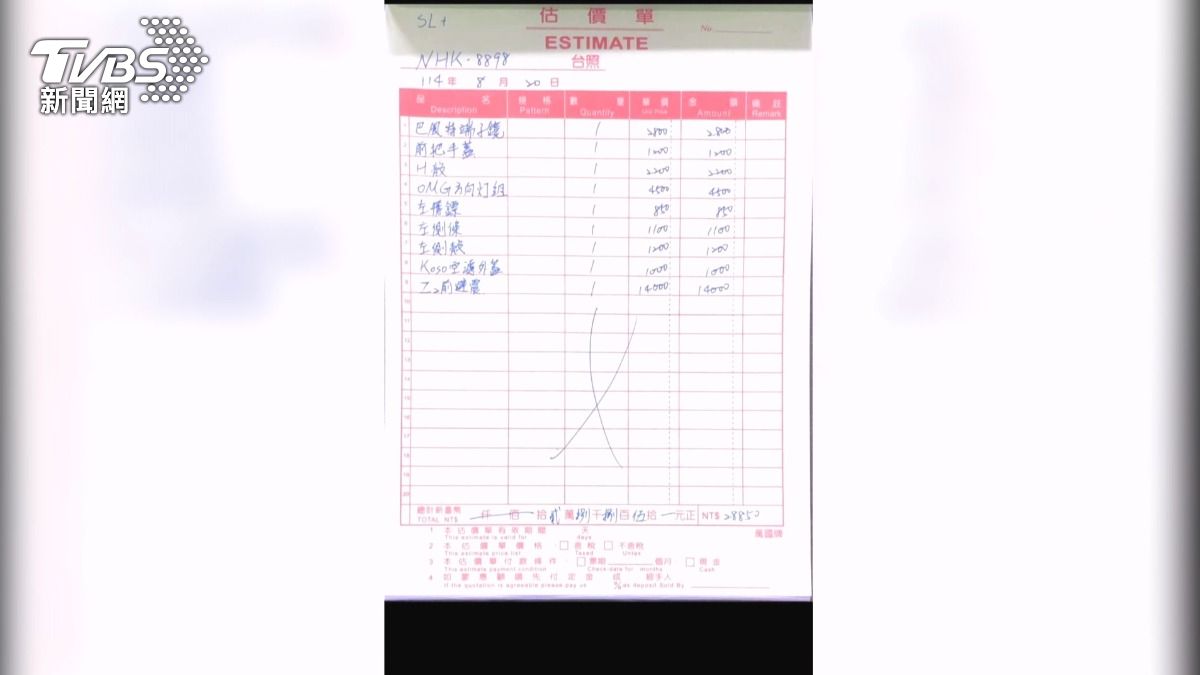 TVBS
新聞網
SL+
估價單
ESTIMATE
No
NHK-8898 台照
114年 8月 20日
品名 規格 數量 單價 金額 備註
Description Pattern Quantity Unit Price Amount Remark
1 巴風特端子鏡 1 2800 2800
2 前把手蓋 1 1200 1200
3 H殼 1 2200 2200
4 OMG方向灯組 1 4500 4500
5 左 1 850 850
6 左側條 1 1100 1100
7 左側殼 1 1200 1200
8 Koso空濾外蓋 1 1000 1000
9 Z2前避震 1 14000 14000
10
11
12
13
14
15
16
17
18
19
20
總計新臺幣 仟佰拾貳萬捌千捌百伍拾元正 NT$ 28850
TOTAL NT$
1 本估價單有效期限 天 萬國牌
This estimate is valid for days
2 本估價單價格 · □ 含稅 □ 不含稅
This estimate price list Taxed Untax
3 本估價單付款條件 · □ 票期 個月 · □ 現金
This estimate payment condition Check date for months Cash
4 如蒙惠顧請先付定金 成 經手人
If the quotation is agreeable please pay us % as deposit Sold By